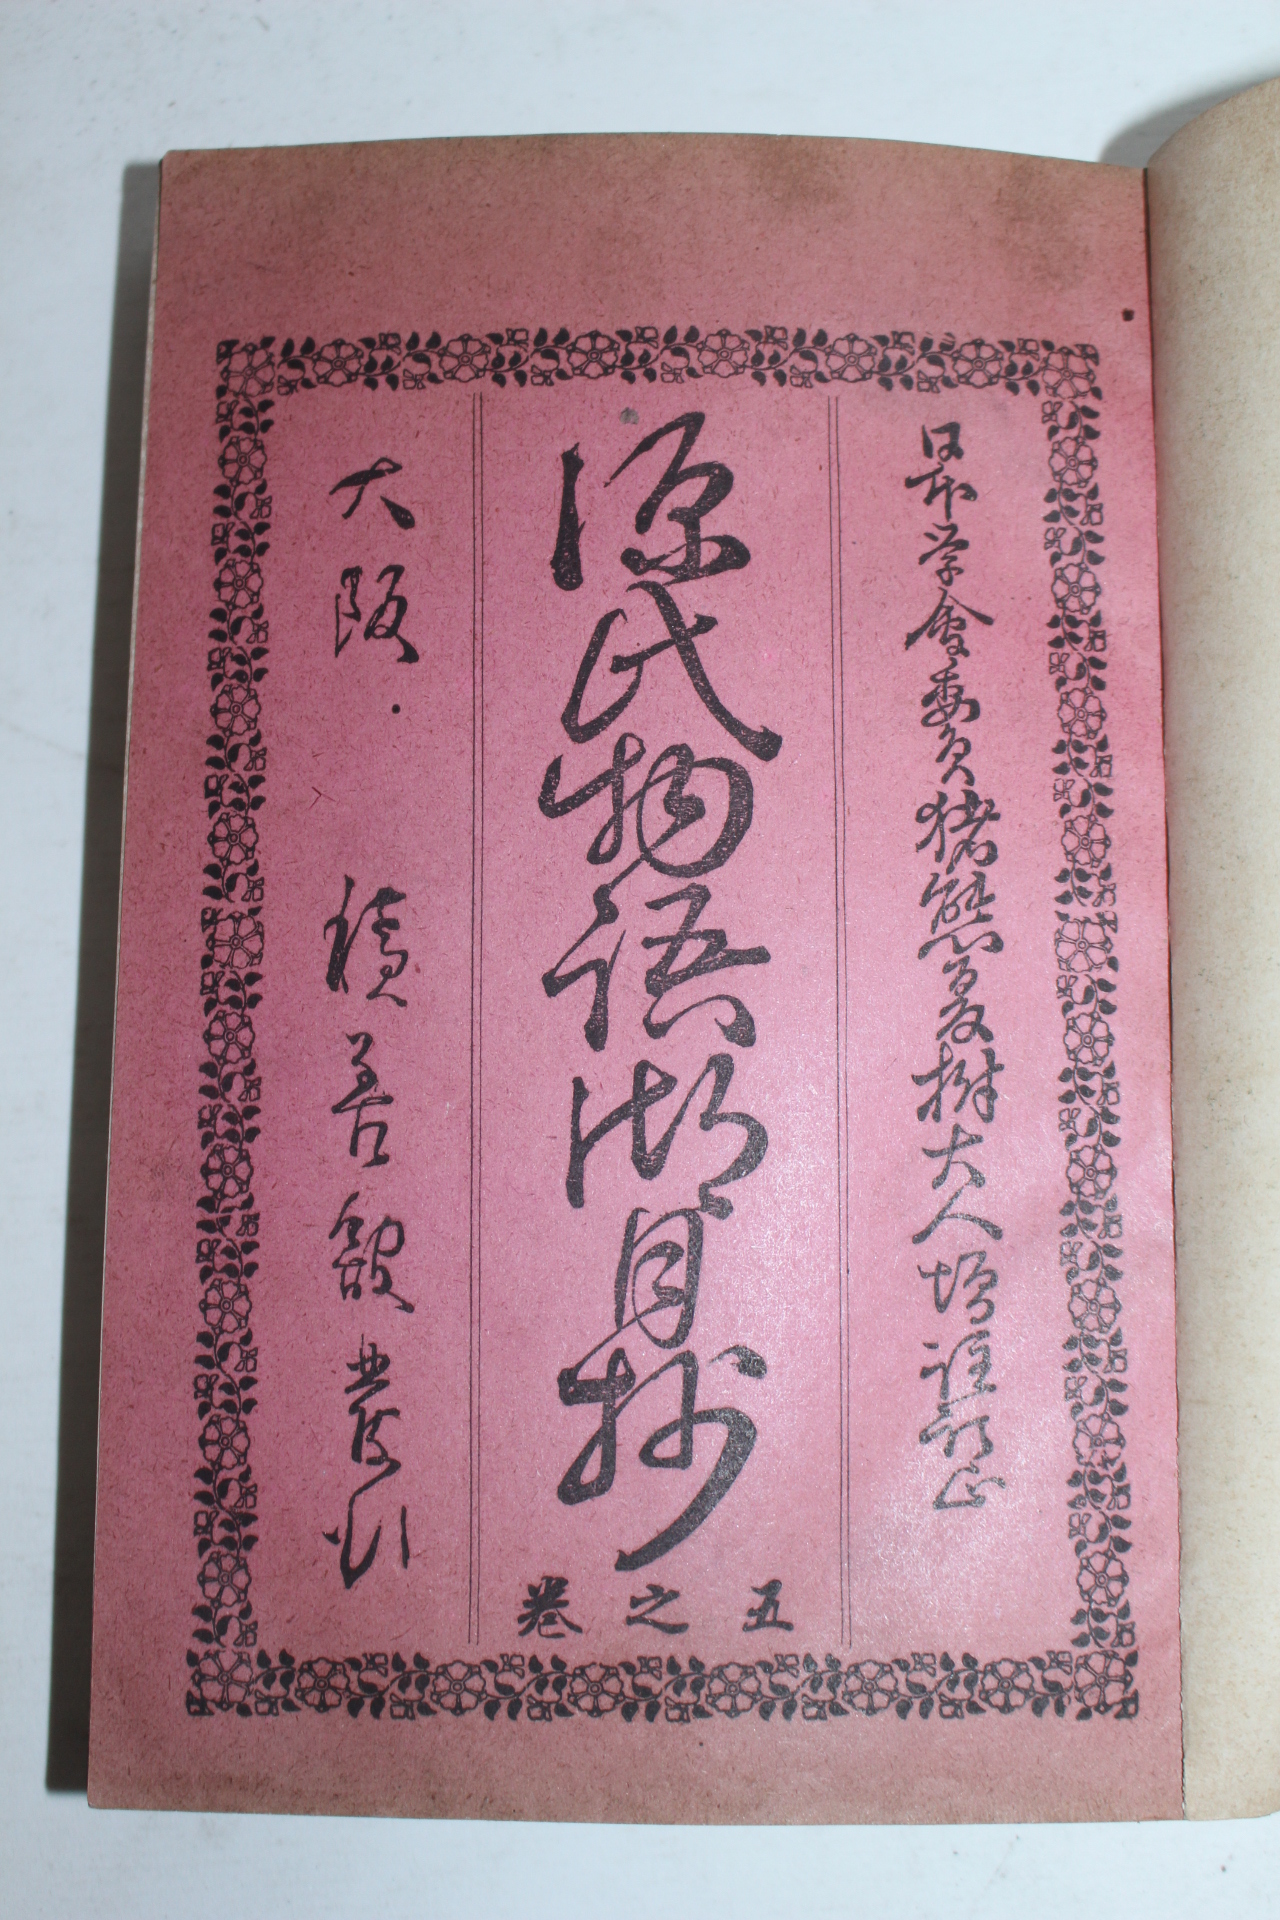 日本学会委員猪熊夏樹大人増註訂正
源氏物語湖月抄
五之巻
大阪 積善館蔵版